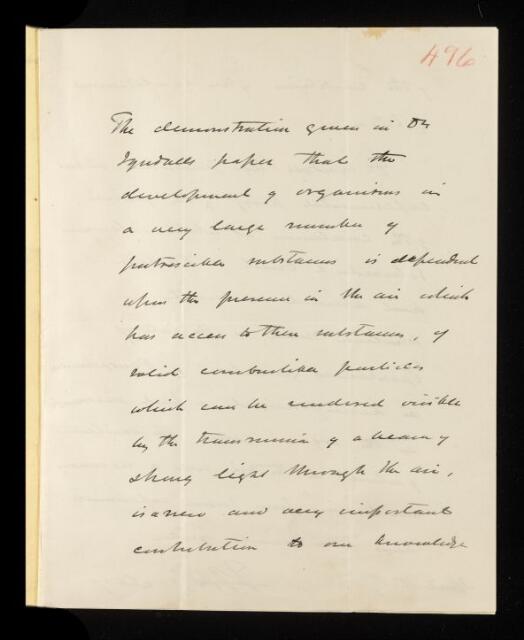 496
The demonstration given in Dr
Tyndalls paper that the
development of organisms in
a very large number of
putrescible substances is dependent
upon the presence in the air which
has access to these substances, of
solid combustible particles
which can be rendered visible
by the transmission of a beam of
strong light through the air,
is a new and very important
contribution to our knowledge